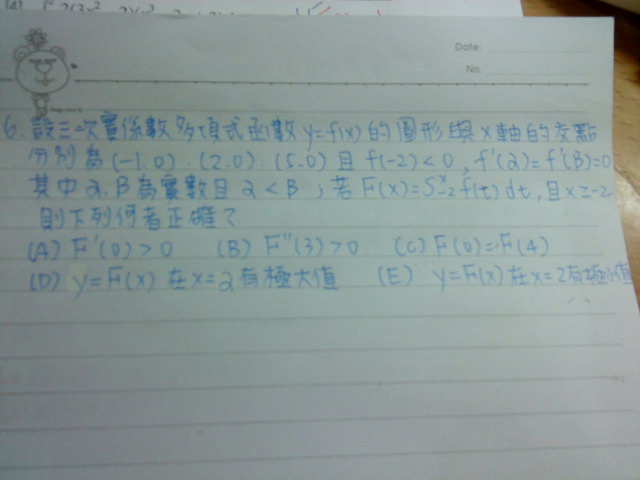 Date:
No.
6. 設三次實係數多項式函數 y=f(x) 的圖形與 x 軸的交點
分別為 (-1,0)、(2,0)、(5,0) 且 f(-2)<0, f'(α)=f'(β)=0
其中 α、β 為實數且 α<β, 若 F(x)=∫₋₂ˣ f(t) dt, 且 x≥-2
則下列何者正確?
(A) F'(0)>0 (B) F''(3)>0 (C) F(0)=F(4)
(D) y=F(x) 在 x=2 有極大值 (E) y=F(x) 在 x=2 有極小值